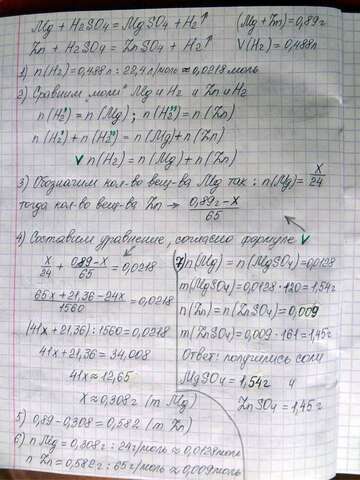 Mg + H2SO4 = MgSO4 + H2↑
(Mg + Zn) = 0,89г
Zn + H2SO4 = ZnSO4 + H2↑
V(H2) = 0,488л
1) n(H2) = 0,488л : 22,4 л/моль ≈ 0,0218 моль
2) Сравним "моли" Mg и H2 и Zn и H2
n(H2') = n(Mg) ; n(H2'') = n(Zn)
n(H2') + n(H2'') = n(Mg) + n(Zn)
V n(H2) = n(Mg) + n(Zn)
3) Обозначим кол-во вещ-ва Mg так: n(Mg) = x/24
тогда кол-во вещ-ва Zn → (0,89г - x)/65
4) Составим уравнение, согласно формуле V
x/24 + (0,89-x)/65 = 0,0218
(65x + 21,36 - 24x)/1560 = 0,0218
(41x + 21,36) : 1560 = 0,0218
41x + 21,36 = 34,008
41x ≈ 12,65
x ≈ 0,308г (m Mg)
5) 0,89 - 0,308 = 0,582 (m Zn)
6) n Mg = 0,308г : 24г/моль ≈ 0,0128моль
n Zn = 0,582г : 65г/моль ≈ 0,009моль
7) n(Mg) = n(MgSO4) = 0,0128
m(MgSO4) = 0,0128 · 120 = 1,54г
n(Zn) = n(ZnSO4) = 0,009
m(ZnSO4) = 0,009 · 161 = 1,45г
Ответ: получились соли
MgSO4 = 1,54г и
ZnSO4 = 1,45г